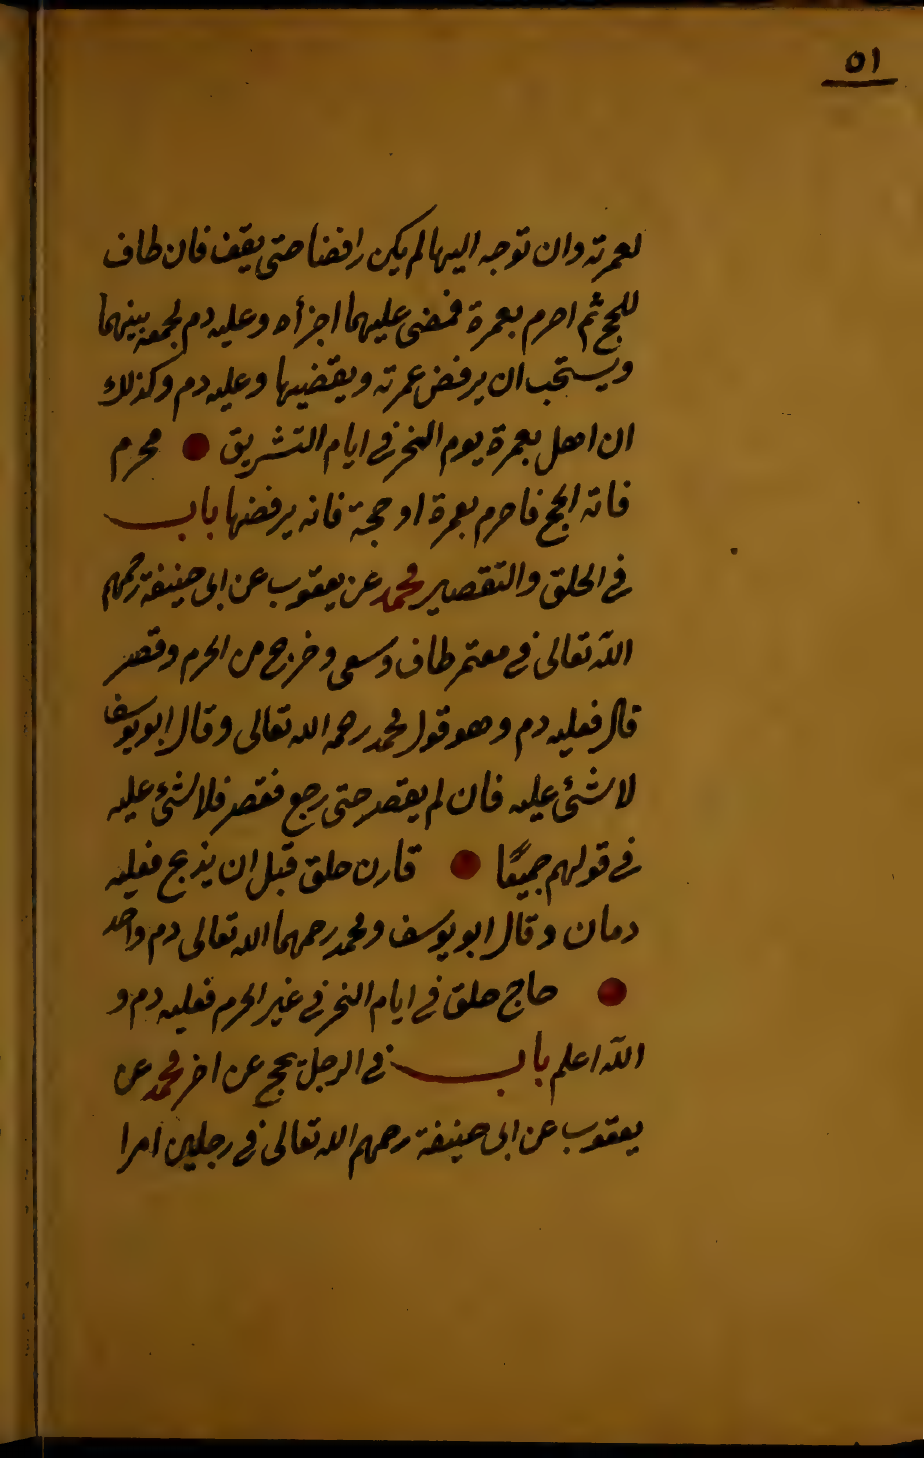 ٥١
لعمرته وان توجه اليها لم يكن رافضا حتى يقف فان طاف
للحج ثم احرم بعمرة فمضى عليهما اجزأه وعليه دم لجمعه بينهما
ويستحب ان يرفض عمرته ويقضيها وعليه دم وكذلك
ان اهل بعمرة يوم النحر في ايام التشريق محرم
فاته الحج فاحرم بعمرة او حجة فانه يرفضها باب
في الحلق والتقصير محمد عن يعقوب عن ابى حنيفة رحمهم
الله تعالى في معتمر طاف وسعى وخرج من الحرم وقصر
قال فعليه دم وهو قول محمد رحمه الله تعالى وقال ابو يوسف
لا شئ عليه فان لم يقصر حتى رجع فقصر فلا شئ عليه
في قولهم جميعًا قارن حلق قبل ان يذبح فعليه
دمان وقال ابو يوسف ومحمد رحمهما الله تعالى دم واحد
حاج حلق في ايام النحر في غير الحرم فعليه دم و
الله اعلم باب في الرجل يحج عن اخر محمد عن
يعقوب عن ابى حنيفة رحمهم الله تعالى في رجلين امرا